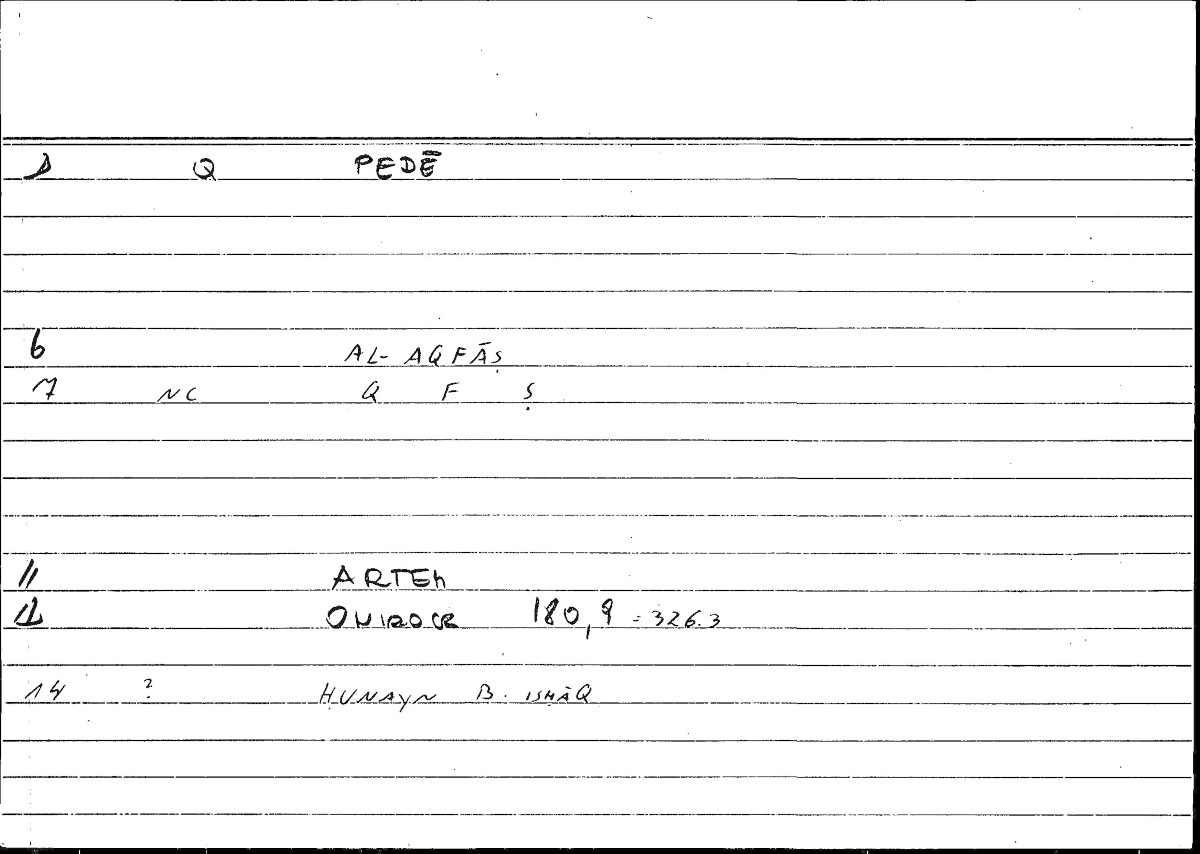 1 Q PEDĒ
6 AL-AQFĀṢ
7 NC Q F Ṣ
11 ARTEM
12 ONIROCR 180,9 = 326.3
14 ? ḤUNAYN B. ISḤĀQ